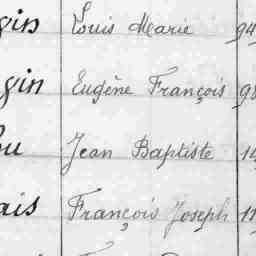 gin Louis Marie 94
gin Eugène François 98
ou Jean Baptiste 14
ais François Joseph 11